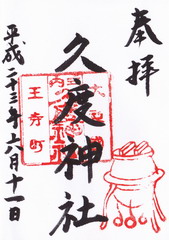 奉拝
久度神社
王寺町
平成二十三年六月十一日